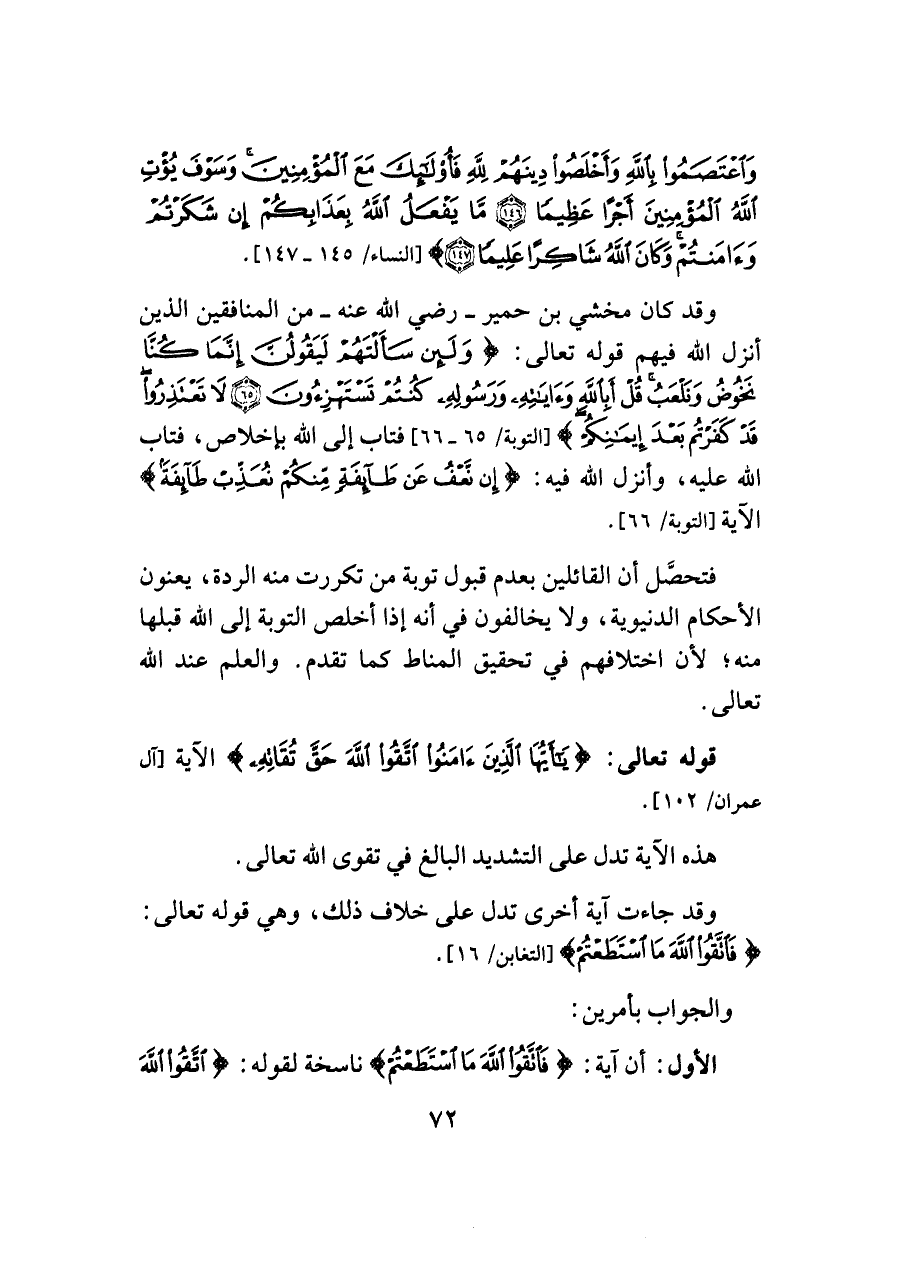 وَٱعْتَصَمُوا۟ بِٱللَّهِ وَأَخْلَصُوا۟ دِينَهُمْ لِلَّهِ فَأُو۟لَٰٓئِكَ مَعَ ٱلْمُؤْمِنِينَ ۖ وَسَوْفَ يُؤْتِ
ٱللَّهُ ٱلْمُؤْمِنِينَ أَجْرًا عَظِيمًا ﴿١٤٦﴾ مَّا يَفْعَلُ ٱللَّهُ بِعَذَابِكُمْ إِن شَكَرْتُمْ
وَءَامَنتُمْ ۚ وَكَانَ ٱللَّهُ شَاكِرًا عَلِيمًا ﴿١٤٧﴾﴾ [النساء/ ١٤٥ ـ ١٤٧].
وقد كان مخشي بن حمير ـ رضي الله عنه ـ من المنافقين الذين
أنزل الله فيهم قوله تعالى: ﴿ وَلَئِن سَأَلْتَهُمْ لَيَقُولُنَّ إِنَّمَا كُنَّا
نَخُوضُ وَنَلْعَبُ ۚ قُلْ أَبِٱللَّهِ وَءَايَٰتِهِۦ وَرَسُولِهِۦ كُنتُمْ تَسْتَهْزِءُونَ ﴿٦٥﴾ لَا تَعْتَذِرُوا۟
قَدْ كَفَرْتُم بَعْدَ إِيمَٰنِكُمْ ﴾ [التوبة/ ٦٥ ـ ٦٦] فتاب إلى الله بإخلاص، فتاب
الله عليه، وأنزل الله فيه: ﴿ إِن نَّعْفُ عَن طَآئِفَةٍ مِّنكُمْ نُعَذِّبْ طَآئِفَةً ﴾
الآية [التوبة/ ٦٦].
فتحصَّل أن القائلين بعدم قبول توبة من تكررت منه الردة، يعنون
الأحكام الدنيوية، ولا يخالفون في أنه إذا أخلص التوبة إلى الله قبلها
منه؛ لأن اختلافهم في تحقيق المناط كما تقدم. والعلم عند الله
تعالى.
قوله تعالى: ﴿ يَٰٓأَيُّهَا ٱلَّذِينَ ءَامَنُوا۟ ٱتَّقُوا۟ ٱللَّهَ حَقَّ تُقَاتِهِۦ ﴾ الآية [آل
عمران/ ١٠٢].
هذه الآية تدل على التشديد البالغ في تقوى الله تعالى.
وقد جاءت آية أخرى تدل على خلاف ذلك، وهي قوله تعالى:
﴿ فَٱتَّقُوا۟ ٱللَّهَ مَا ٱسْتَطَعْتُمْ ﴾ [التغابن/ ١٦].
والجواب بأمرين:
الأول: أن آية: ﴿ فَٱتَّقُوا۟ ٱللَّهَ مَا ٱسْتَطَعْتُمْ ﴾ ناسخة لقوله: ﴿ ٱتَّقُوا۟ ٱللَّهَ
٧٢